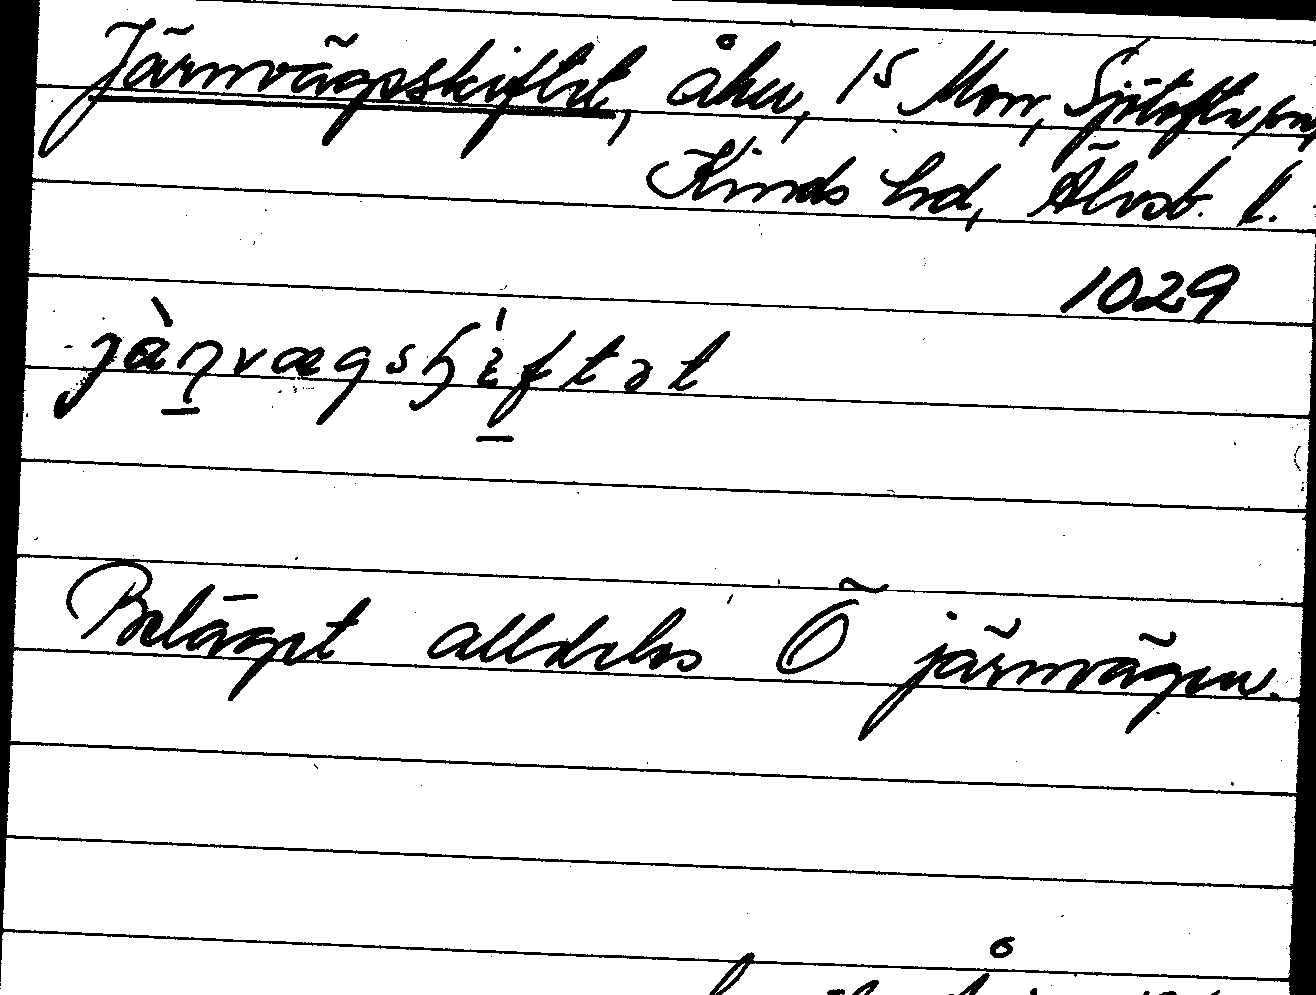 Järnvägsskiftet, åker, 15 Mon, Sjötofta sn,
Kinds hd, Älvsb. l.
1029
jàɳvægsꞕìftət
Beläget alldeles Ö järnvägen.